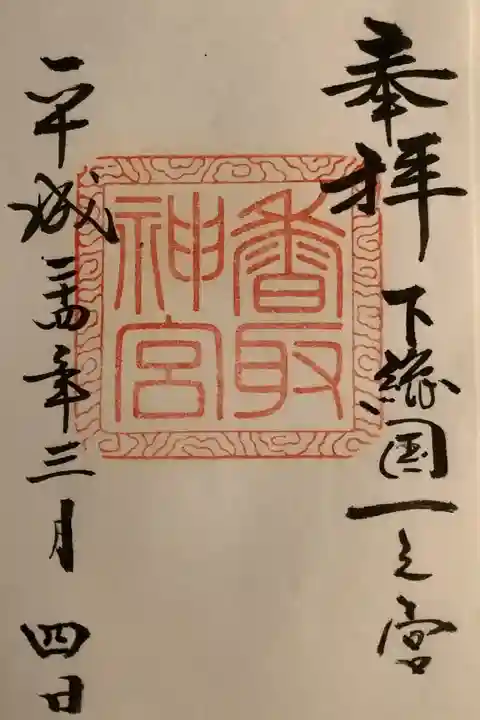 奉拝 下総国一之宮
香取
神宮
平成二十四年三月四日